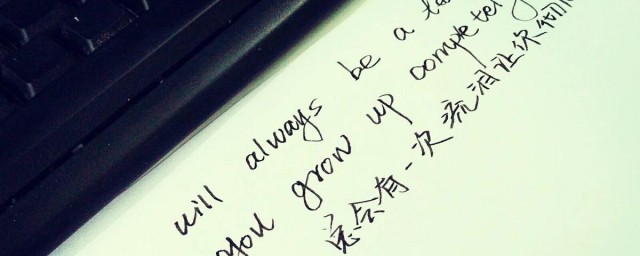 will always be a
you grow up complete
总会有一次流泪让你